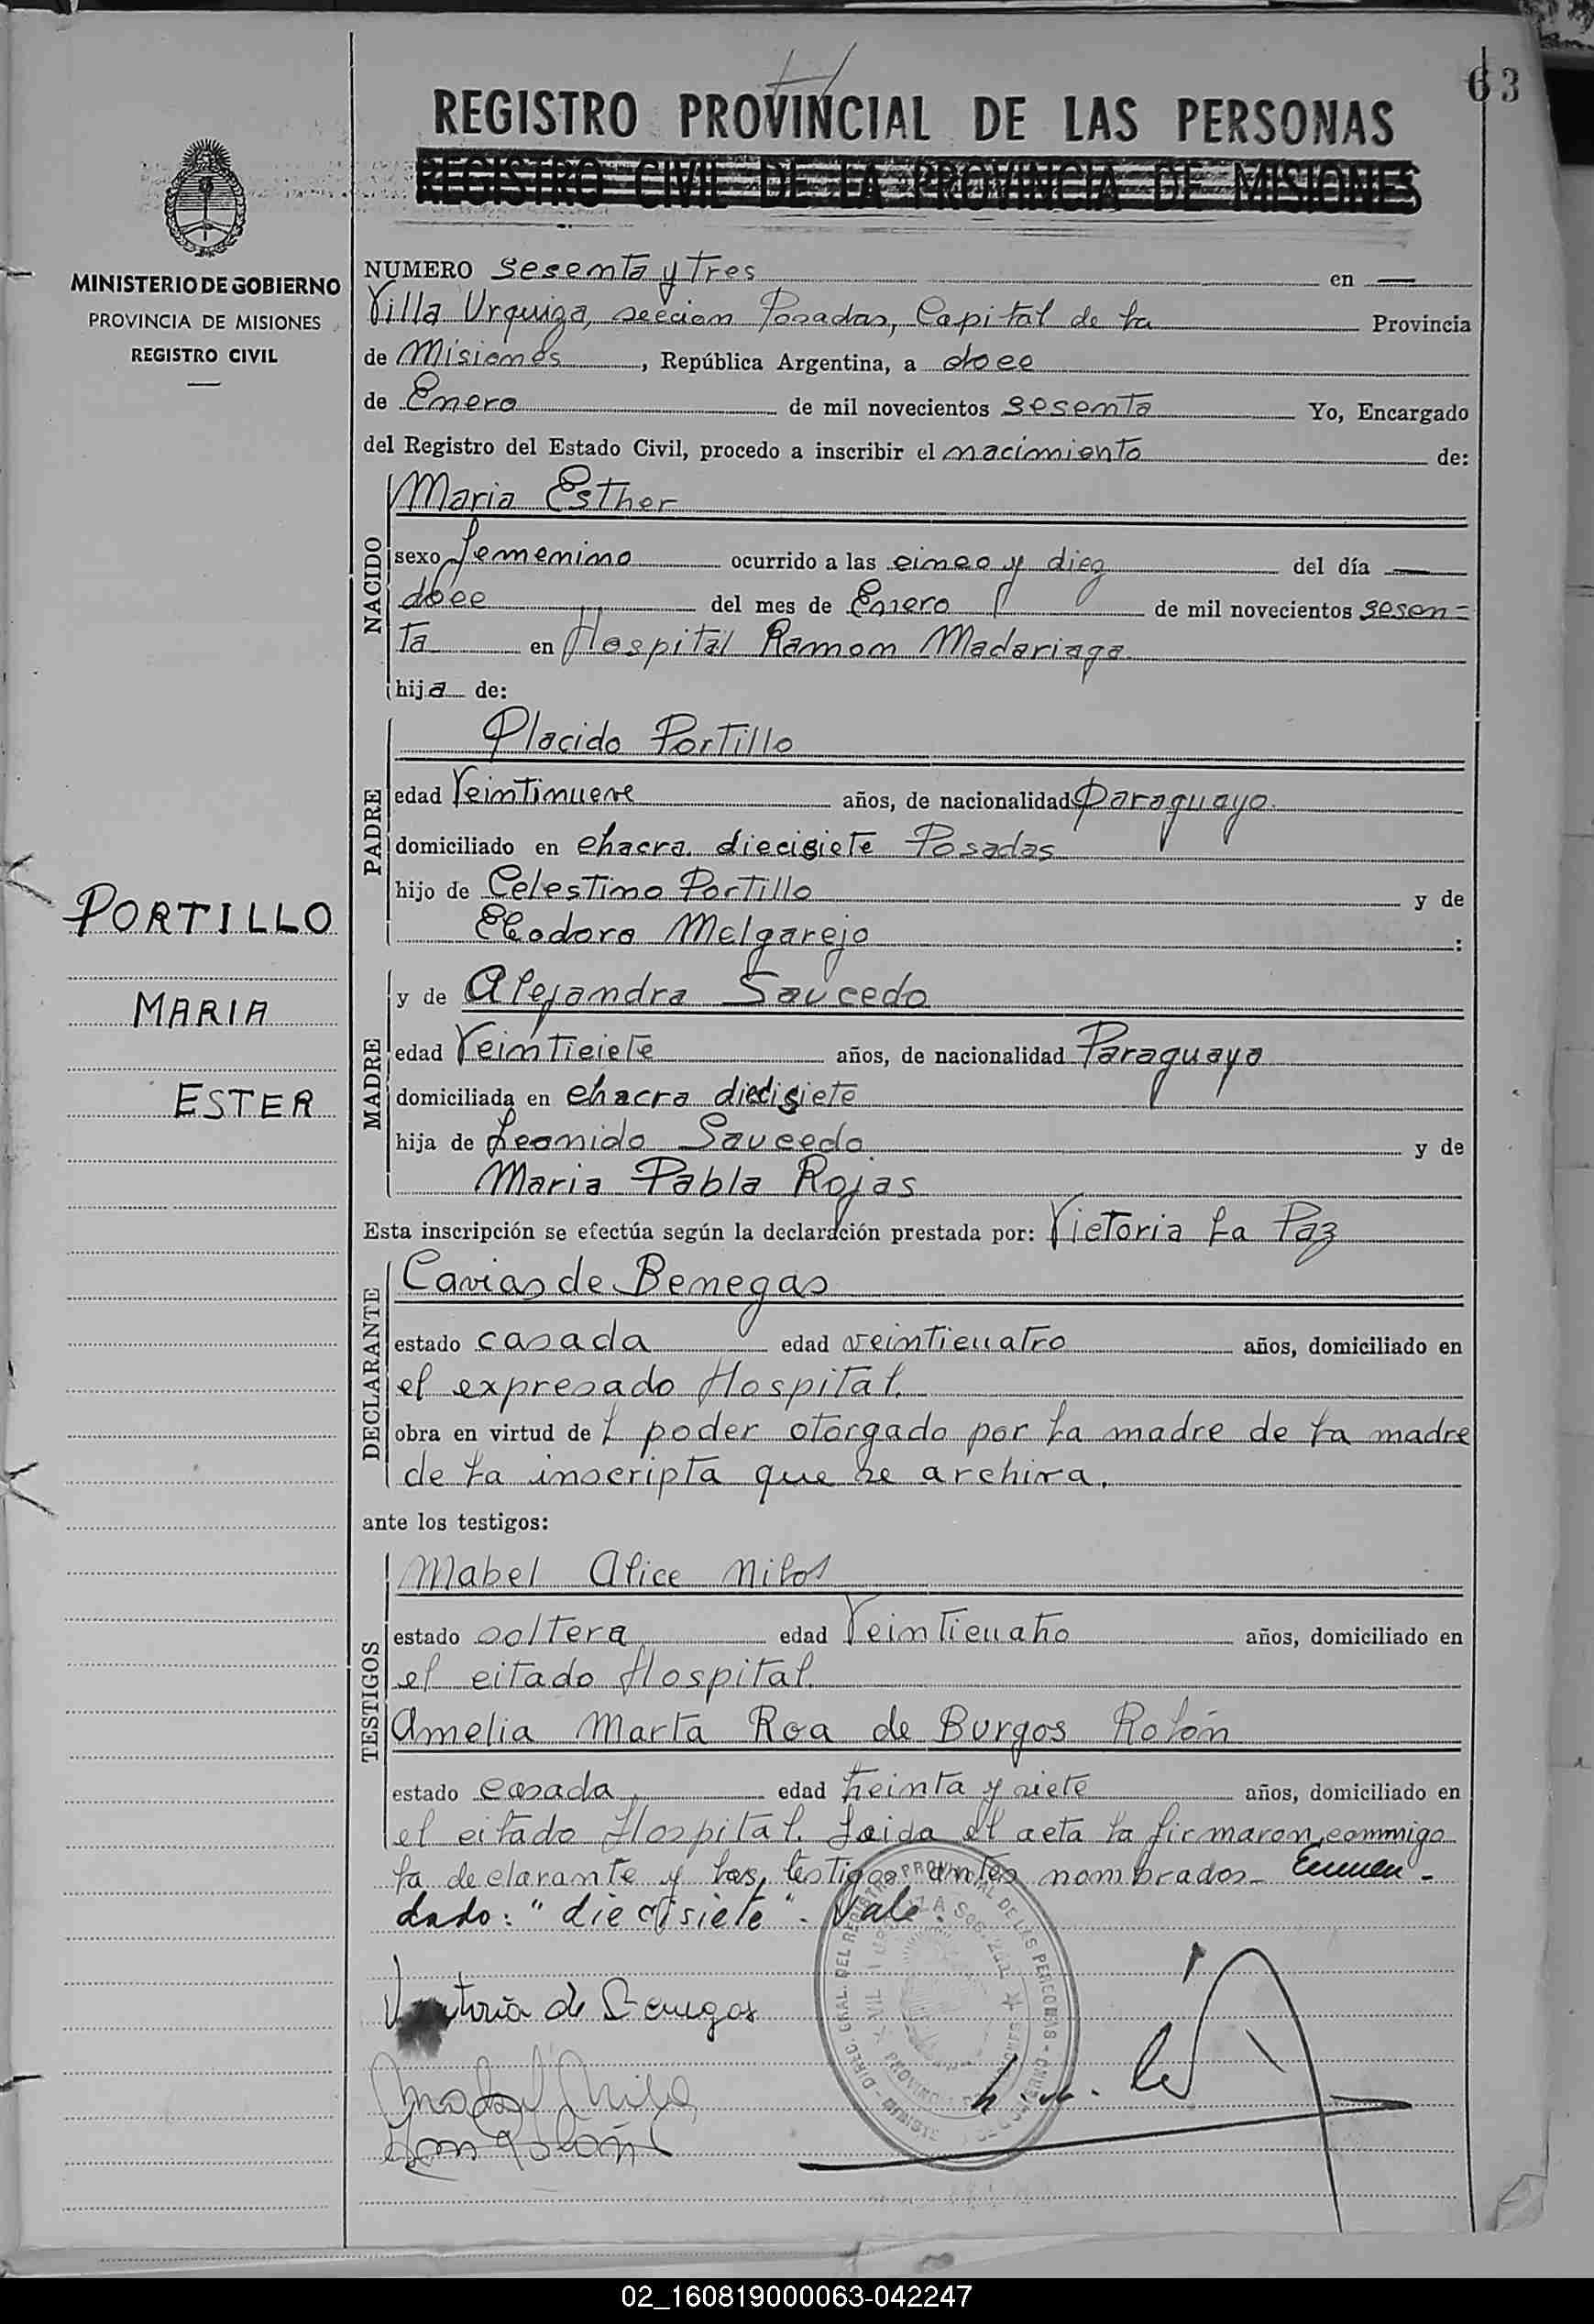 63
REGISTRO PROVINCIAL DE LAS PERSONAS
REGISTRO CIVIL DE LA PROVINCIA DE MISIONES
MINISTERIO DE GOBIERNO
PROVINCIA DE MISIONES
REGISTRO CIVIL
PORTILLO
MARIA
ESTER
NUMERO sesenta y tres en
Villa Urquiza, seccion Posadas, Capital de la Provincia
de Misiones, República Argentina, a doce
de Enero de mil novecientos sesenta Yo, Encargado
del Registro del Estado Civil, procedo a inscribir el nacimiento de:
NACIDO
Maria Esther
sexo femenino ocurrido a las cinco y diez del día
doce del mes de Enero de mil novecientos sesen=
ta en Hospital Ramon Madariaga
hija de:
PADRE
Placido Portillo
edad Veintinueve años, de nacionalidad Paraguayo
domiciliado en chacra diecisiete Posadas
hijo de Celestino Portillo y de
Eleodora Melgarejo :
MADRE
y de Alejandra Saucedo
edad Veintisiete años, de nacionalidad Paraguaya
domiciliada en chacra diecisiete
hija de Leonido Saucedo y de
Maria Pabla Rojas
Esta inscripción se efectúa según la declaración prestada por: Victoria La Paz
DECLARANTE
Cavias de Benegas
estado casada edad veinticuatro años, domiciliado en
el expresado Hospital.
obra en virtud de l poder otorgado por la madre de la madre
de la inscripta que se archiva.
ante los testigos:
TESTIGOS
Mabel Alice Milos
estado soltera edad Veinticuatro años, domiciliado en
el citado Hospital.
Amelia Marta Roa de Burgos Rolón
estado casada, edad treinta y siete años, domiciliado en
el citado Hospital. Leida el acta la firmaron conmigo
la declarante y los testigos antes nombrados- Enmen-
dado: "diecisiete". Vale.
Victoria de Benegas
02_160819000063-042247